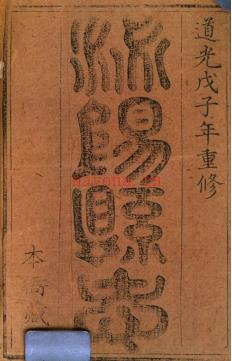 道光戊子年重修
泌陽縣志
本衙藏